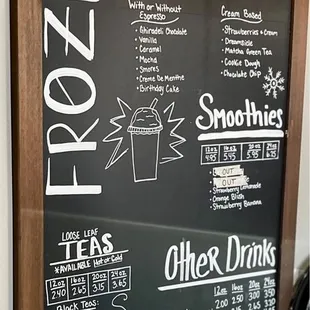 FROZE
With or Without
Espresso
• Ghiradeli Chocolate
• Vanilla
• Caramel
• Mocha
• Smores
• Creme De Menthe
• Birthday Cake
Cream Based
• Strawberries + Cream
• Dreamsicle
• Matcha Green Tea
• Cookie Dough
• Chocolate Chip
Smoothies
12oz 16oz 20oz 24oz
4.95 5.45 5.95 6.75
OUT
OUT
• Strawberry Lemonade
• Orange Blush
• Strawberry Banana
LOOSE LEAF
TEAS
*AVAILABLE Hot or Cold
12oz 16oz 20oz 24oz
2.40 2.65 3.15 3.65
Black Teas:
Other Drinks
12oz 16oz 20oz 24oz
2.00 2.50 3.00 3.50